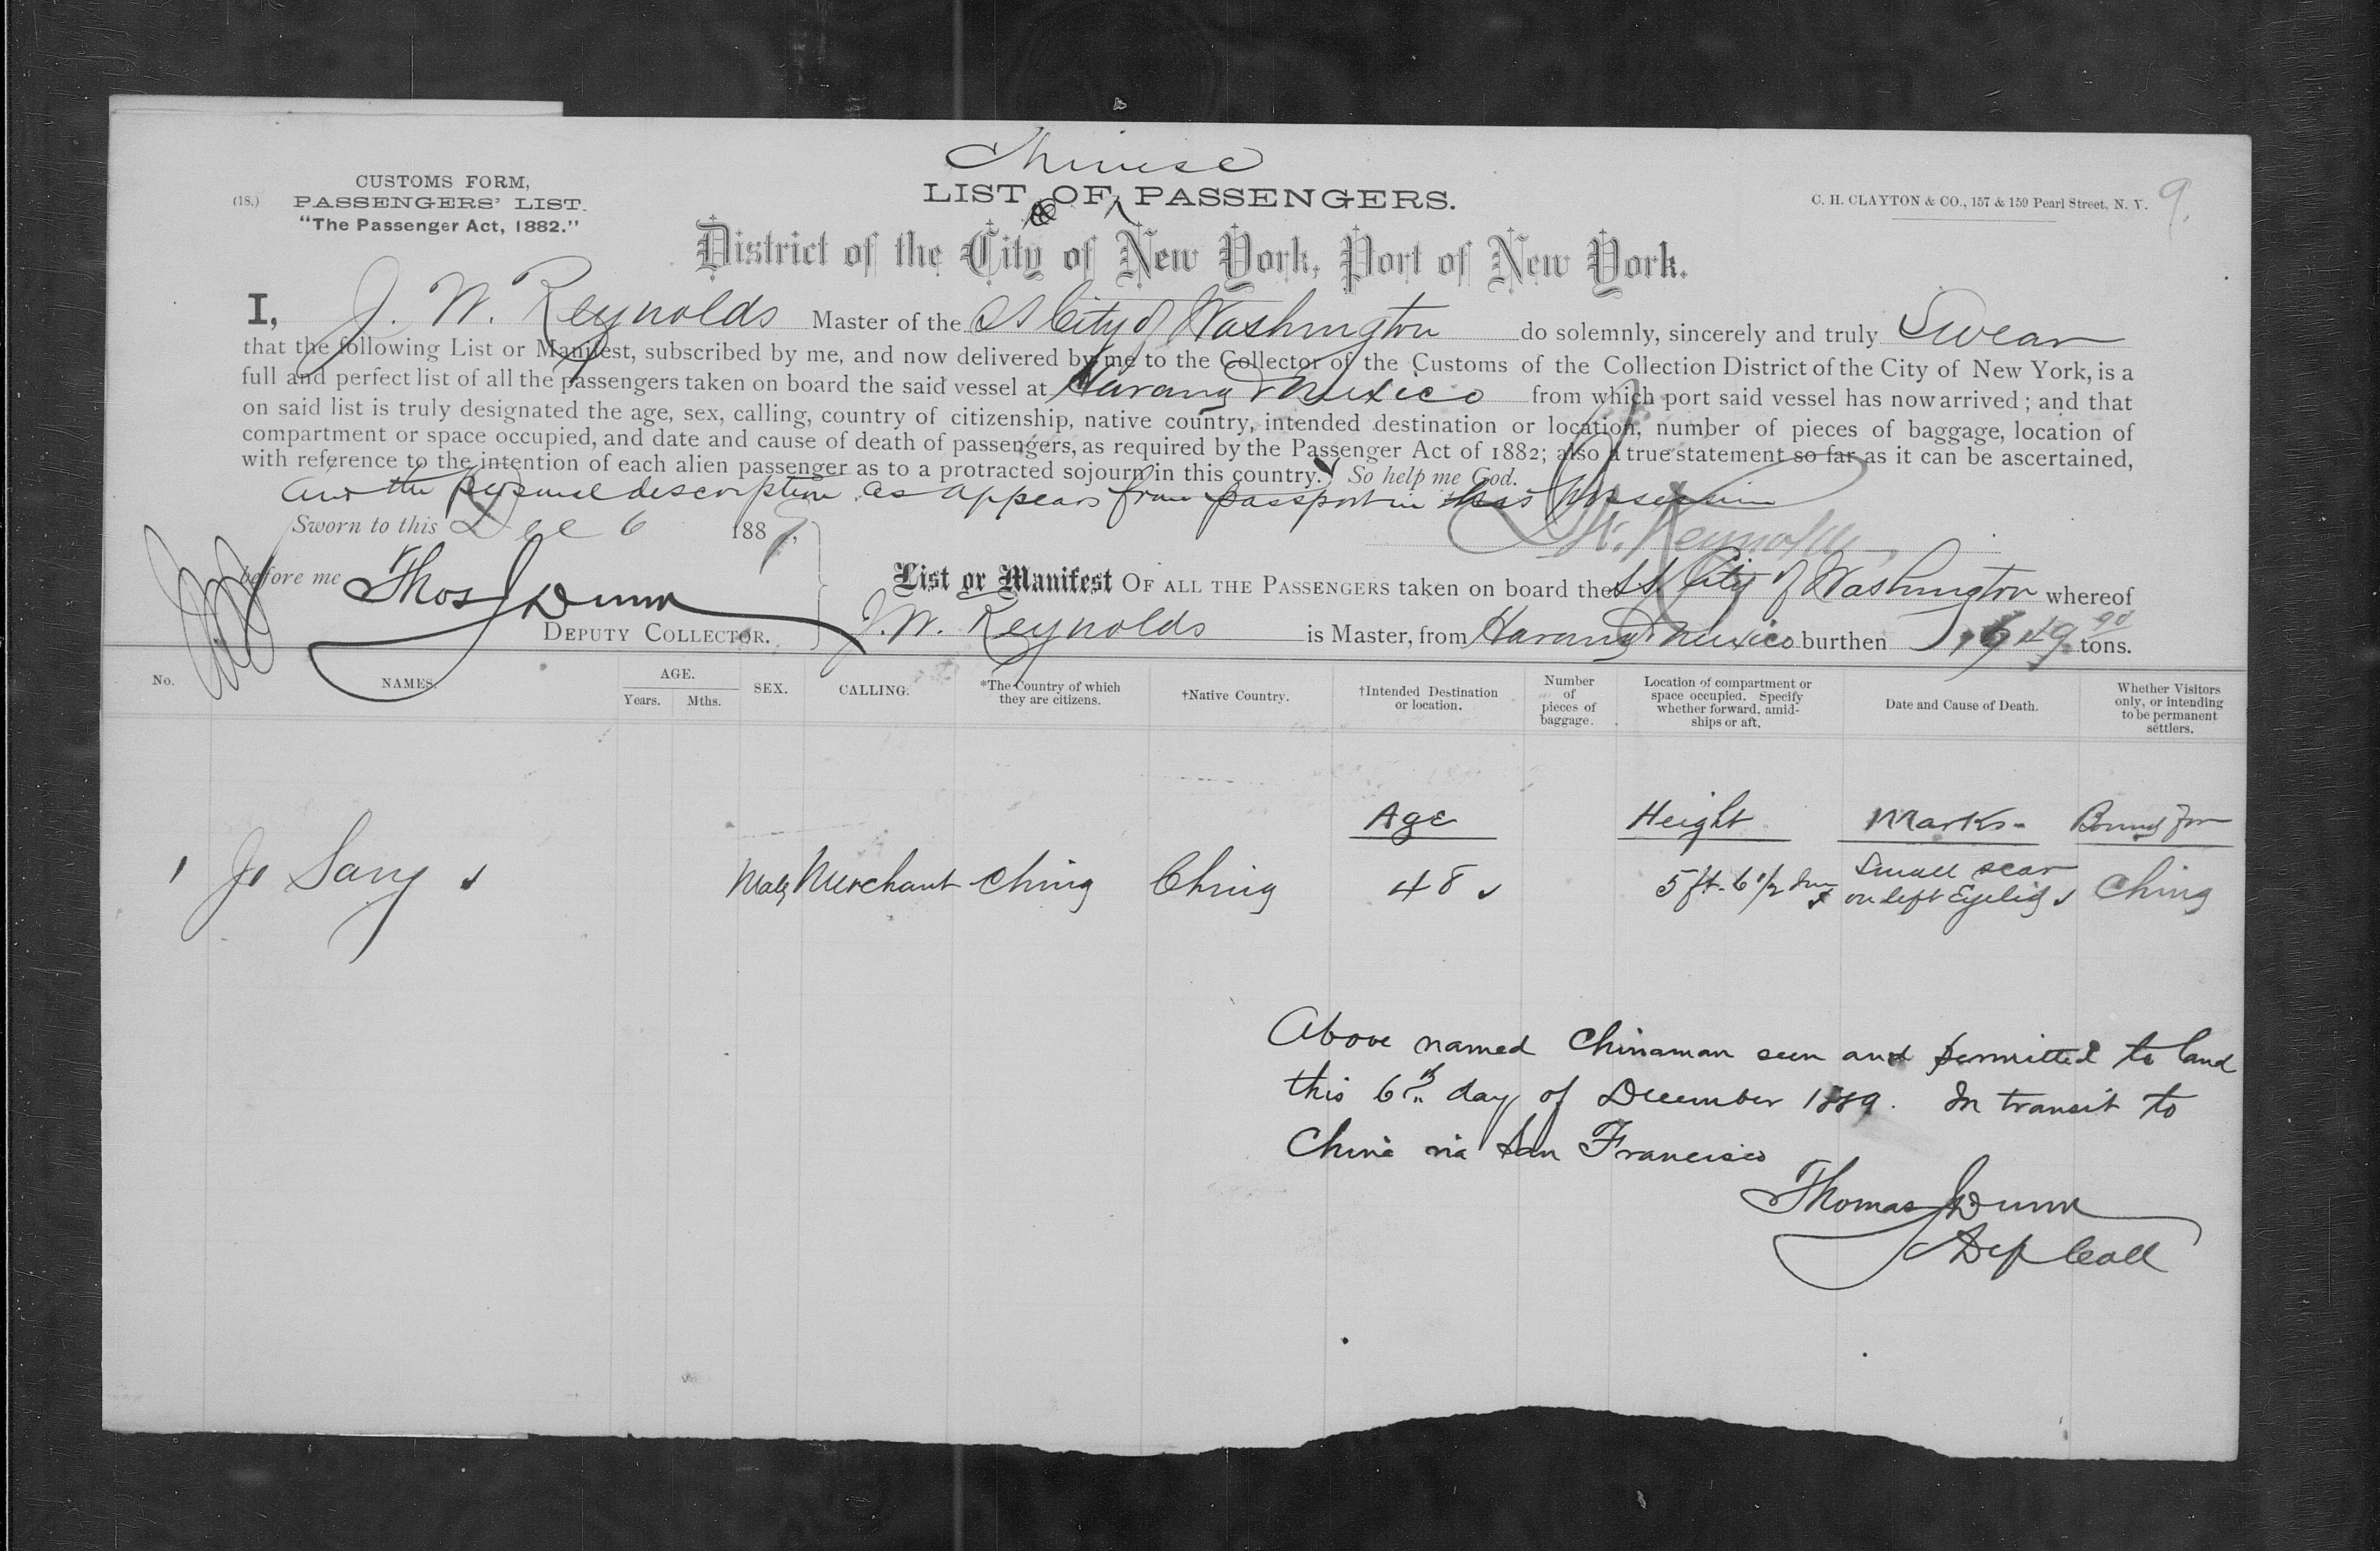 Chinese
CUSTOMS FORM,
(18.) PASSENGERS' LIST.
"The Passenger Act, 1882."
LIST OF PASSENGERS.
C. H. CLAYTON & CO., 157 & 159 Pearl Street, N. Y. 9.
District of the City of New York, Port of New York.
I, J. W. Reynolds Master of the SS City of Washington do solemnly, sincerely and truly Swear
that the following List or Manifest, subscribed by me, and now delivered by me to the Collector of the Customs of the Collection District of the City of New York, is a
full and perfect list of all the passengers taken on board the said vessel at Havana & Mexico from which port said vessel has now arrived; and that
on said list is truly designated the age, sex, calling, country of citizenship, native country, intended destination or location, number of pieces of baggage, location of
compartment or space occupied, and date and cause of death of passengers, as required by the Passenger Act of 1882; also a true statement so far as it can be ascertained,
with reference to the intention of each alien passenger as to a protracted sojourn in this country. So help me God.
and the personal description as appears from passport in his possession
Sworn to this Dec 6 1889,
J. W. Reynolds
before me Thos J Dunn
DEPUTY COLLECTOR.
List or Manifest OF ALL THE PASSENGERS taken on board the S.S. City of Washington whereof
J. W. Reynolds is Master, from Havana & Mexico burthen 1,649 90 tons.
No. NAMES. AGE. Years. Mths. SEX. CALLING. *The Country of which they are citizens. †Native Country. †Intended Destination or location. Number of pieces of baggage. Location of compartment or space occupied. Specify whether forward, amidships or aft. Date and Cause of Death. Whether Visitors only, or intending to be permanent settlers.
Age Height Marks - Bound for
1 Jo Sang Male Merchant China China 48 5 ft. 6 1/2 Ins Small scar on left Eyelid China
Above named Chinaman seen and permitted to land
this 6th day of December 1889. In transit to
China via San Francisco
Thomas J Dunn
Dep Coll